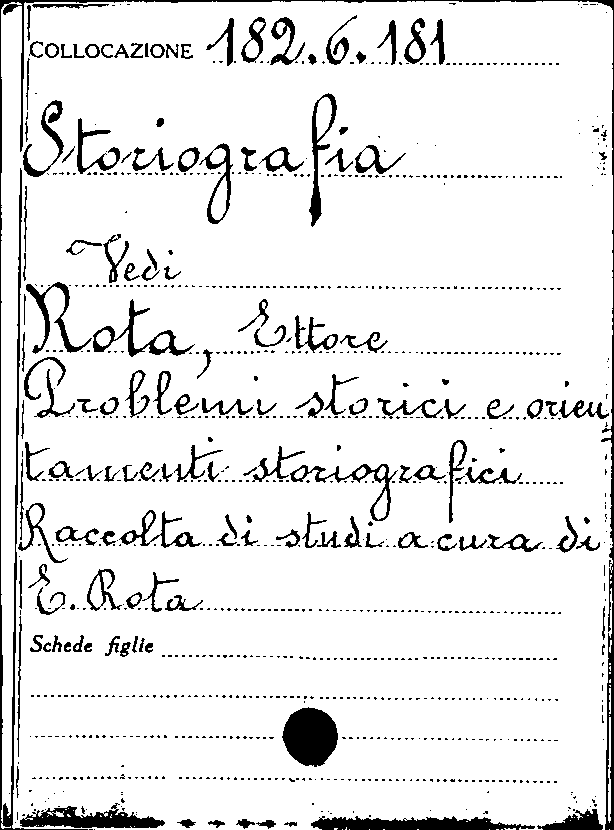 COLLOCAZIONE 182.6.181
Storiografia
Vedi
Rota, Ettore
Problemi storici e orien
tamenti storiografici
Raccolta di studi a cura di
E. Rota
Schede figlie